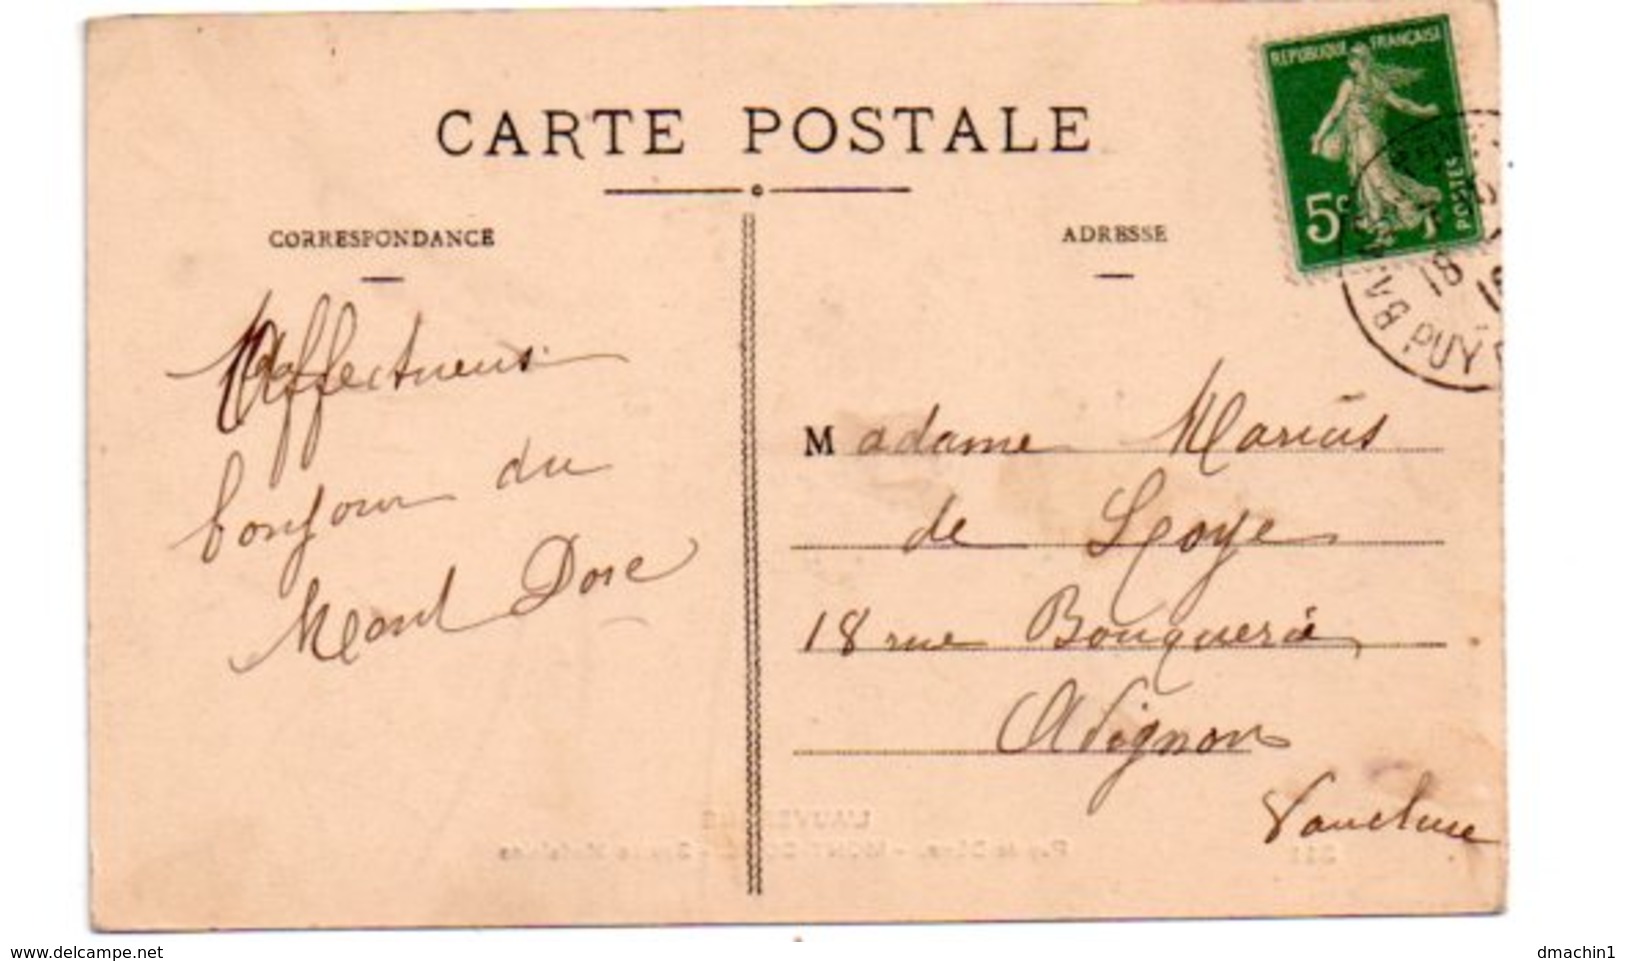 CARTE POSTALE
CORRESPONDANCE
ADRESSE
REPUBLIQUE FRANÇAISE
5c
POSTES
18
PUY
Affectueux
bonjour du
Mont Dore
Madame Marius
de Loye
18 rue Bouquerie
Avignon
Vaucluse
L'AUVERGNE
www.delcampe.net
dmachin1